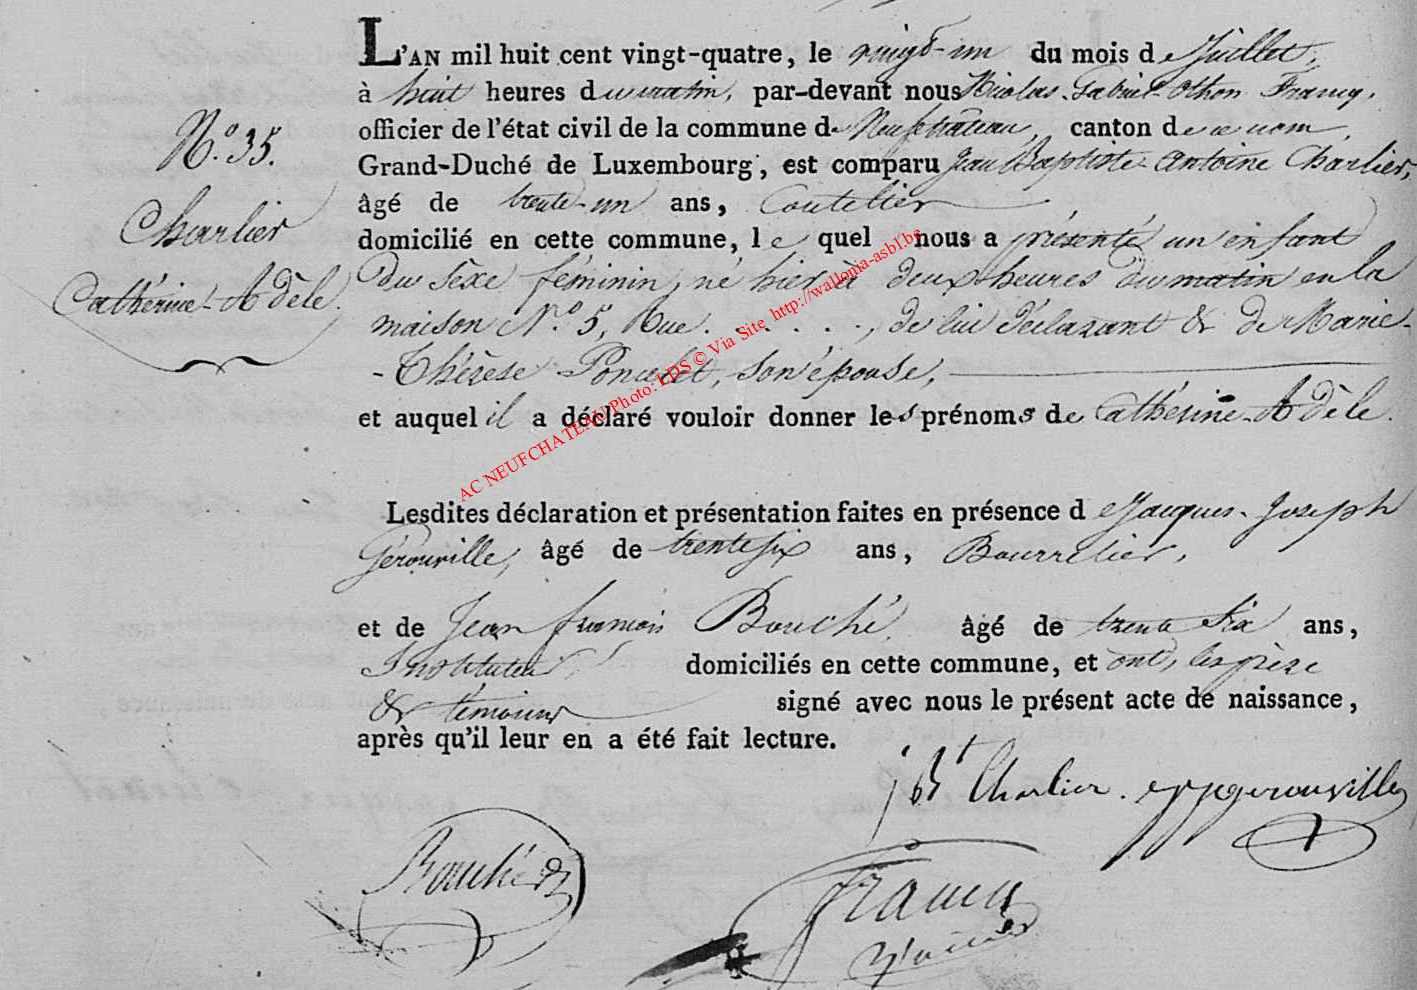 L'AN mil huit cent vingt-quatre, le vingt-un du mois de Juillet,
à huit heures du matin, par-devant nous Nicolas-Gabriel-Othon Francq,
officier de l'état civil de la commune de Neufchâteau, canton de ce nom,
N.o 35.
Grand-Duché de Luxembourg, est comparu Jean Baptiste Antoine Charlier,
âgé de trente-un ans, Coutelier
Charlier
domicilié en cette commune, le quel nous a présenté un enfant
Catherine-Adèle.
du Sèxe féminin, né hier à deux heures du matin en la
maison N.o 5, Rue . . . . . . , de lui déclarant & de Marie-
-Thérèse Poncelet, son épouse,
et auquel il a déclaré vouloir donner les prénoms de Catherine-Adèle.
Lesdites déclaration et présentation faites en présence de Jacques-Joseph
Gérouville, âgé de trente six ans, Bourrelier,
et de Jean françois Bouché, âgé de trente Six ans,
Instituteur, domiciliés en cette commune, et ont, les père
& témoins signé avec nous le présent acte de naissance,
après qu'il leur en a été fait lecture.
jBt Charlier. jjgerouville
Bouché
Francq
AC NEUFCHATEAU Photo: LDS © Via Site http://wallonia-asbl.be